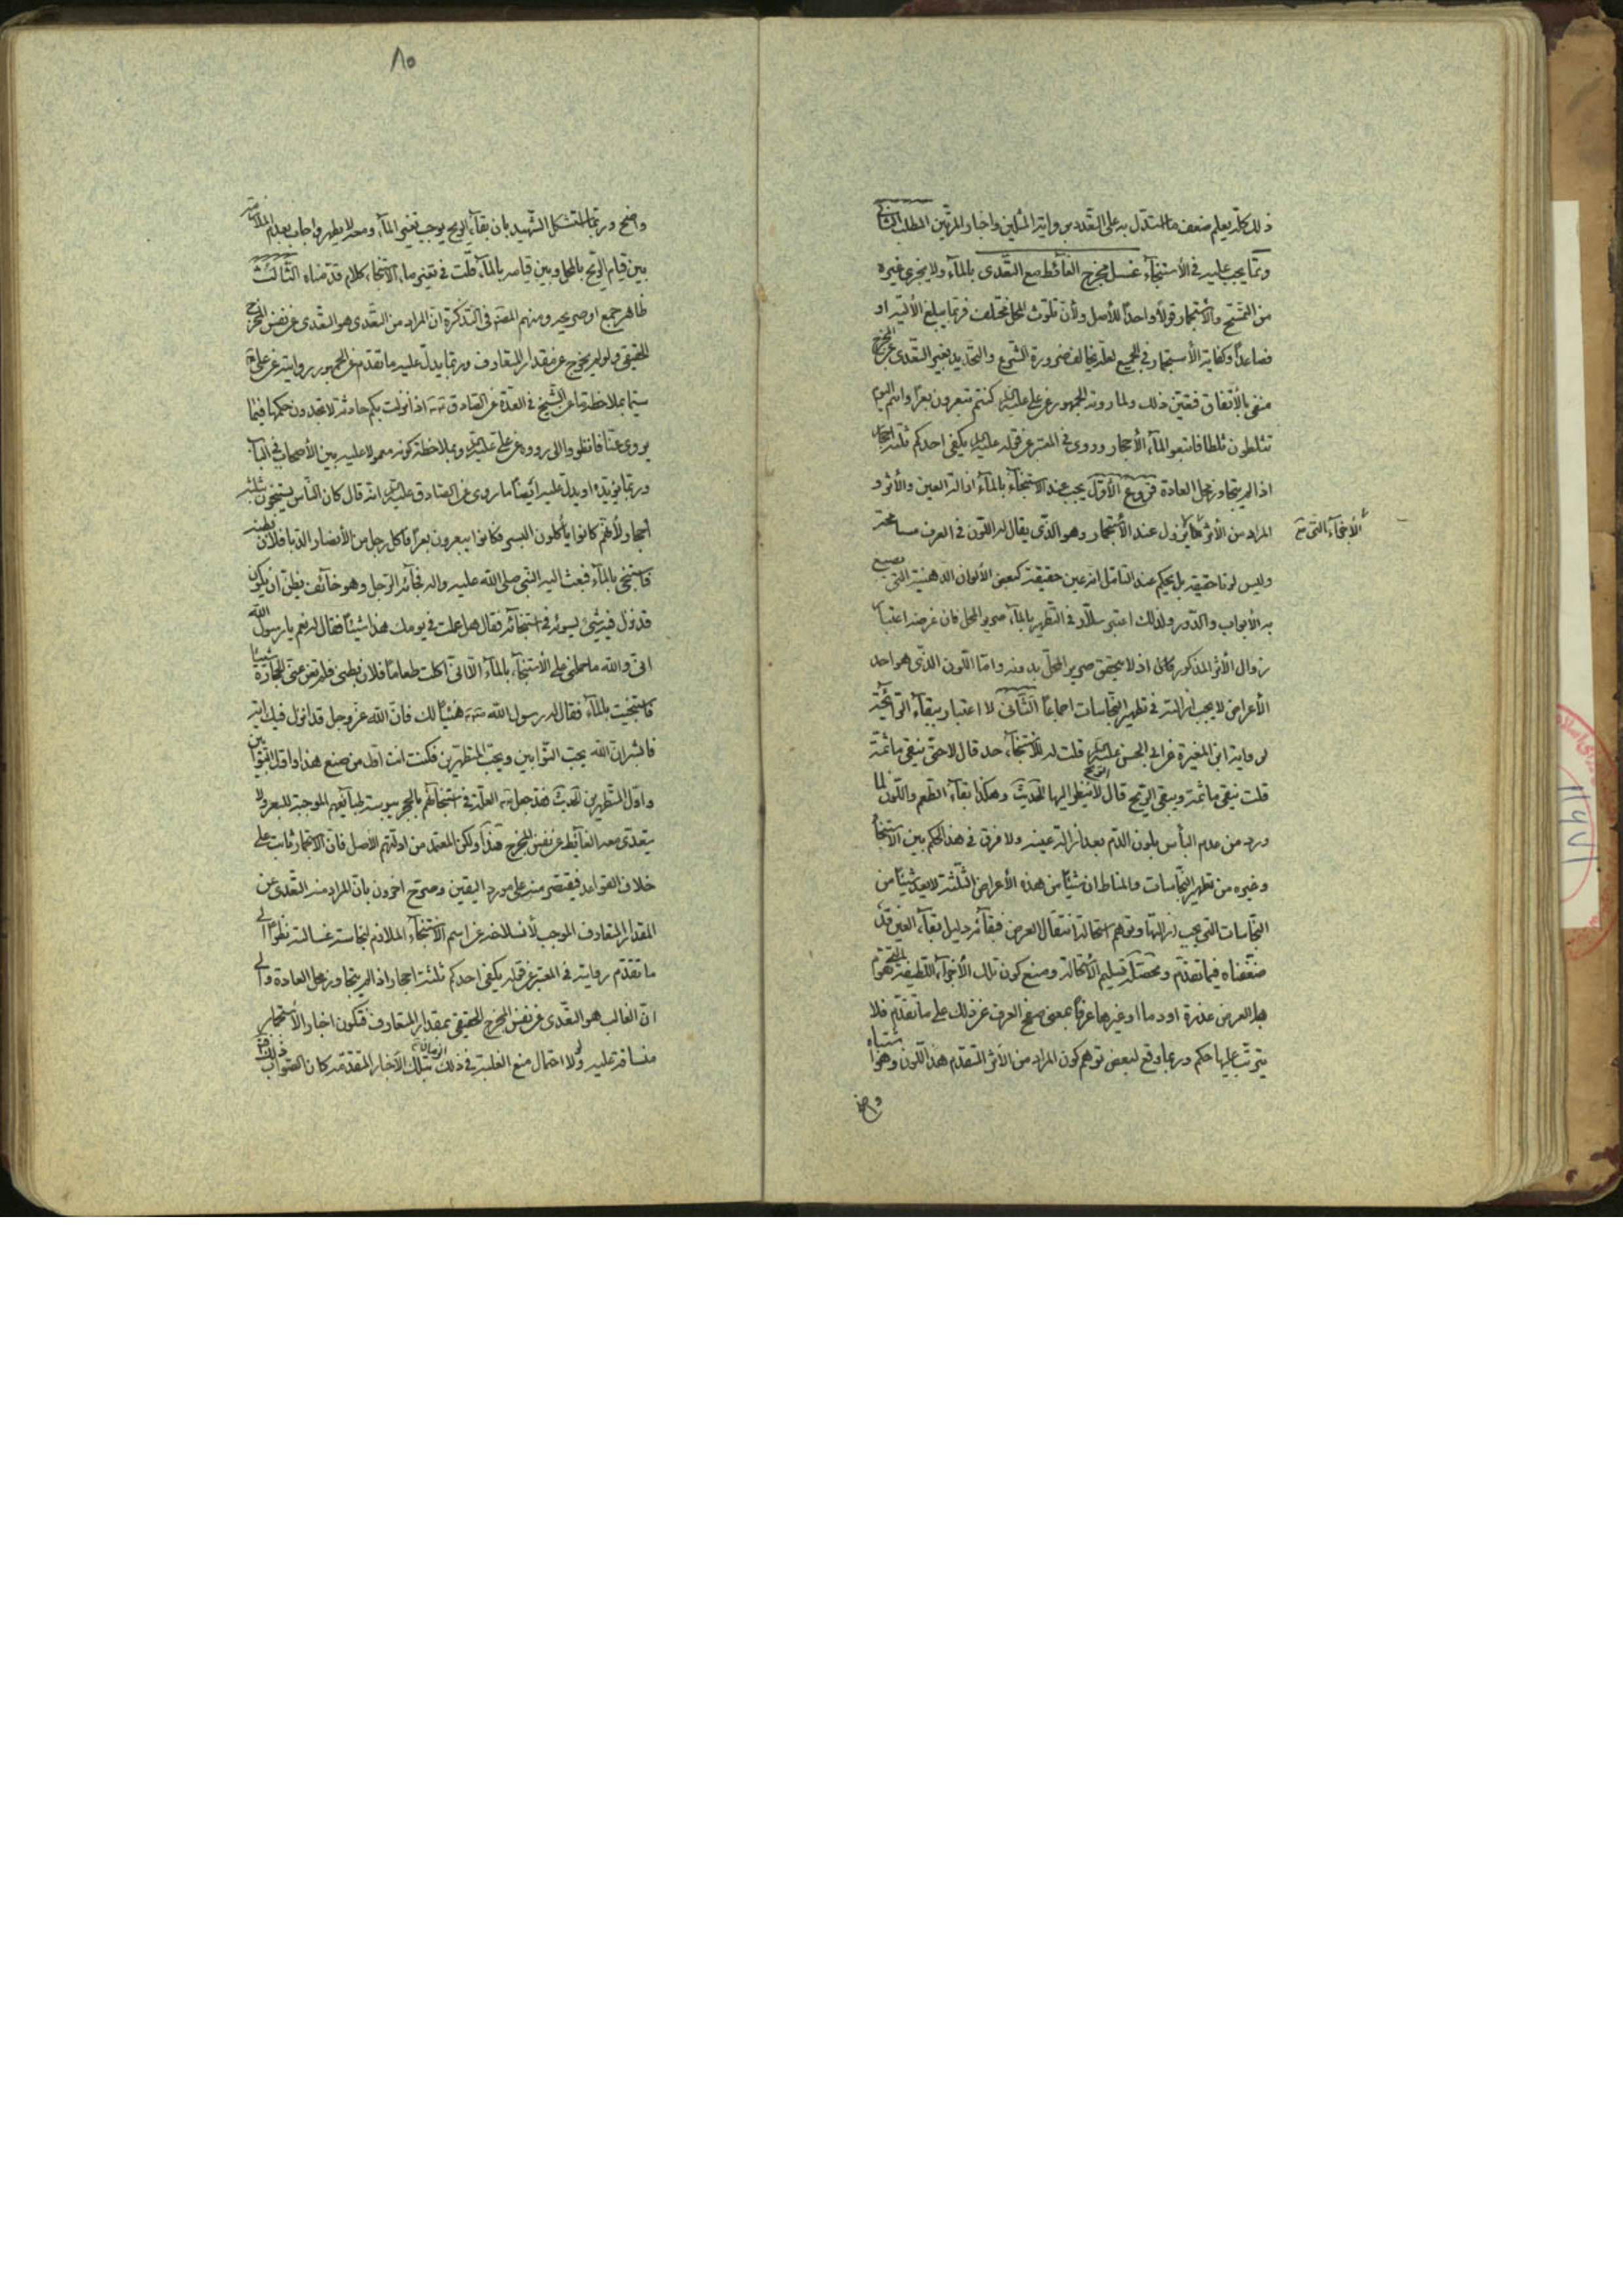 ذلك كله يعلم ضعف ما استدل به على التعدد من رواية المثلين واخبار المرتين المطلب الثانى
ومما يجب عليه فى الأستنجاء غسل مخرج الغائط مع التعدى بالمآء ولا يجزى غيره
من التمسح والأستجمار قولاً واحداً للأصل ولأن تلوث المحل مختلف فربما يبلغ الألية او
فصاعداً وكفاية الأستجمار فى الجميع لعله يخالف ضرورة الشرع والتحديد بغير التعدى عن المخرج
منفى بالأتفاق فتعين ذلك ولما روته الجمهور عن على عليه السلم كنتم تبعرون بعراً وانتم اليوم
تثلطون ثلطا فاتبعوا المآء الأحجار وروى فى المعتبر عن قوله عليه السلم يكفى احدكم ثلثة احجار
اذا لم يتجاوز محل العادة فروع الأول يجب عند الاستنجآء بالمآء ازالة العين والأثر و
المراد من الأثر ما يزول عند الأستجمار وهو الذى يقال له اللون فى العرف مسامحة
الأجزآء التى مع
وليس لونا حقيقة بل يحكم عند التأمل انه عين حقيقة كبعض الألوان الدهنية التى يصبغ
به الأبواب والدور ولذلك اعتبر سلار فى التطهير بالمآء صرير المحل فان غرضه اعتبار
زوال الأثر المذكور كان اذ لا يتحقق صرير المحل بدونه واما اللون الذى هو احد
الأعراض لا يجب ازالته فى تطهير النجاسات اجماعاً الثانى لا اعتبار ببقآء الرائحة
لرواية ابن المغيرة عن ابى الحسن عليه السلم قلت له للأستنجآء حد قال لا حتى ينقى ما ثمة
قلت ينقى ما ثمة ويبقى الريح قال الريح لا ينظر اليها الحديث وهكذا بقآء الطعم واللون لما
ورد من عدم البأس بلون الدم بعد ازالة عينه ولا فرق فى هذا الحكم بين الاستنجآء
وغيره من تطهير النجاسات والمناط ان شيئاً من هذه الأعراض الثلثة لا يعد شيئاً من
النجاسات التى يجب ازالتها وتوهم استحالة انتقال العرض فبقآئه دليل بقآء العين قد
ضعفناه فيما تقدم ومحصله تسليم الأستحالة ومنع كون تلك الأجزآء اللطيفة المتقومة
بها العرض عذرة او دما او غيرها عرفاً بمعنى صفح العرف عن ذلك على ما تقدم فلا
يترتب عليها حكم وربما وقع لبعض توهم كون المراد من الأثر المتقدم هذا اللون وهو اشتباه
واضح
٨٥
واضح وربما استشكل الشهيد بان بقآء الريح يوجب تغير المآء ومعه لا يطهر واجاب بعدم الملازمة
بين قيام الريح بالمحل وبين قيامه بالمآء قلت فى تغير مآء الأستنجآء كلام قدمناه الثالث
ظاهر جمع او صريحه ومنهم المصنف فى التذكرة ان المراد من التعدى هو التعدى عن نفس المخرج
الحقيقى ولو لم يخرج عن مقدار المتعارف وربما يدل عليه ما تقدم عن الجمهور بروايته عن على
سيما بملاحظة ما عن الشيخ فى العدة عن الصادق اذا نزلت بكم حادثة لا تجدون حكمها فيما
يروى عنا فانظروا الى ما رووه عن على عليه السلم وبملاحظة كونه معمولا عليه بين الأصحاب فى الباب
وربما يؤيده او يدل عليه ايضاً ما روى عن الصادق عليه السلم انه قال كان الناس يستنجون بثلثة
احجار لأنهم كانوا يأكلون البسر فكانوا يبعرون بعراً فاكل رجل من الأنصار الدبا فلان بطنه
فاستنجى بالمآء فبعث اليه النبى صلى الله عليه واله فجآئه الرجل وهو خآئف يظن ان يكون
قد نزل فيه شئ يسوئه فى استنجآئه فقال هل عملت فى يومك هذا شيئاً فقال له نعم يا رسول الله
انى والله ما حملنى على الأستنجآء بالمآء الا انى اكلت طعاماً فلان بطنى فلم تغن عنى الحجارة شيئاً
فاستنجيت بالمآء فقال له رسول الله هنيئاً لك فان الله عز وجل قد انزل فيك اية
فابشر ان الله يحب التوابين ويحب المتطهرين فكنت انت اول من صنع هذا واول التوابين
واول المتطهرين الحديث فقد جعل العلة فى استنجآئهم بالحجر يبوسة طبآئعهم الموجبة للبعر ولا
يتعدى معه الغآئط عن نفس المخرج هذا ولكن المعتمد من ادلتهم الأصل فان الأستجمار ثابت على
خلاف القواعد فيقتصر منه على مورد اليقين وصرح اخرون بان المراد منه التعدى عن
المقدار المتعارف الموجب لأنسلاخه عن اسم الأستنجآء الملازم لنجاسة غسالته نظراً الى
ما تقدم روايته فى المعتبر عن قوله يكفى احدكم ثلثة احجار اذا لم يتجاوز محل العادة والى
ان الغالب هو التعدى عن نفس المخرج الحقيقى بمقدار المتعارف فتكون اخبار الأستجمار
منساقة عليه ولولا احتمال منع الغلبة فى ذلك الزمان بتلك الأخبار المتقدمة كان الصواب ذلك